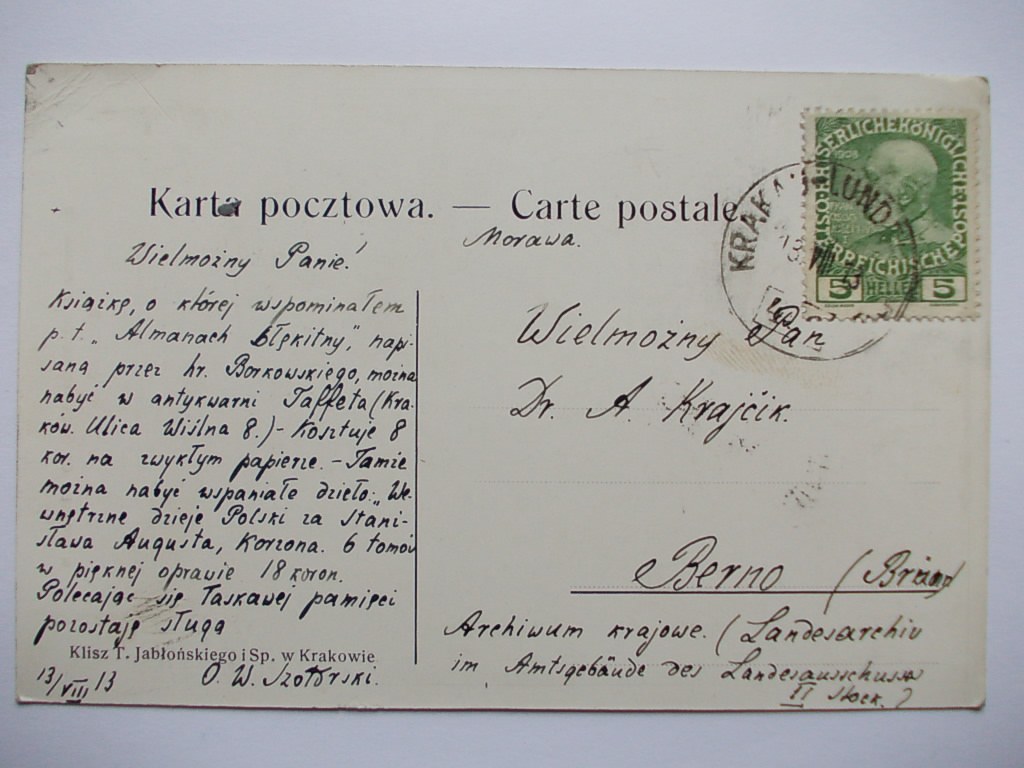 Karta pocztowa. — Carte postale.
Morawa.
Wielmożny Panie!
Książkę, o której wspominałem
p. t. „Almanach błękitny", napi-
saną przez hr. Borkowskiego, można
nabyć w antykwarni Taffeta (Kra-
ków. Ulica Wiślna 8.) - Kosztuje 8
kor. na zwykłym papierze. - Tamże
można nabyć wspaniałe dzieło: „We-
wnętrzne dzieje Polski za Stani-
sława Augusta, Korzona. 6 tomów
w pięknej oprawie 18 koron.
Polecając się łaskawej pamięci
pozostaję sługą
Klisz T. Jabłońskiego i Sp. w Krakowie
13/VIII 13
O. W.
Wielmożny Pan
Dr. A Krajčik.
Berno (Brünn)
Archiwum krajowe. (Landesarchiv
im Amtsgebäude des Landesausschusses
II Stock.)
KAISERLICHE KÖNIGLICHE
POST
1908
5 HELLER 5
KRAKAU
VIII 13